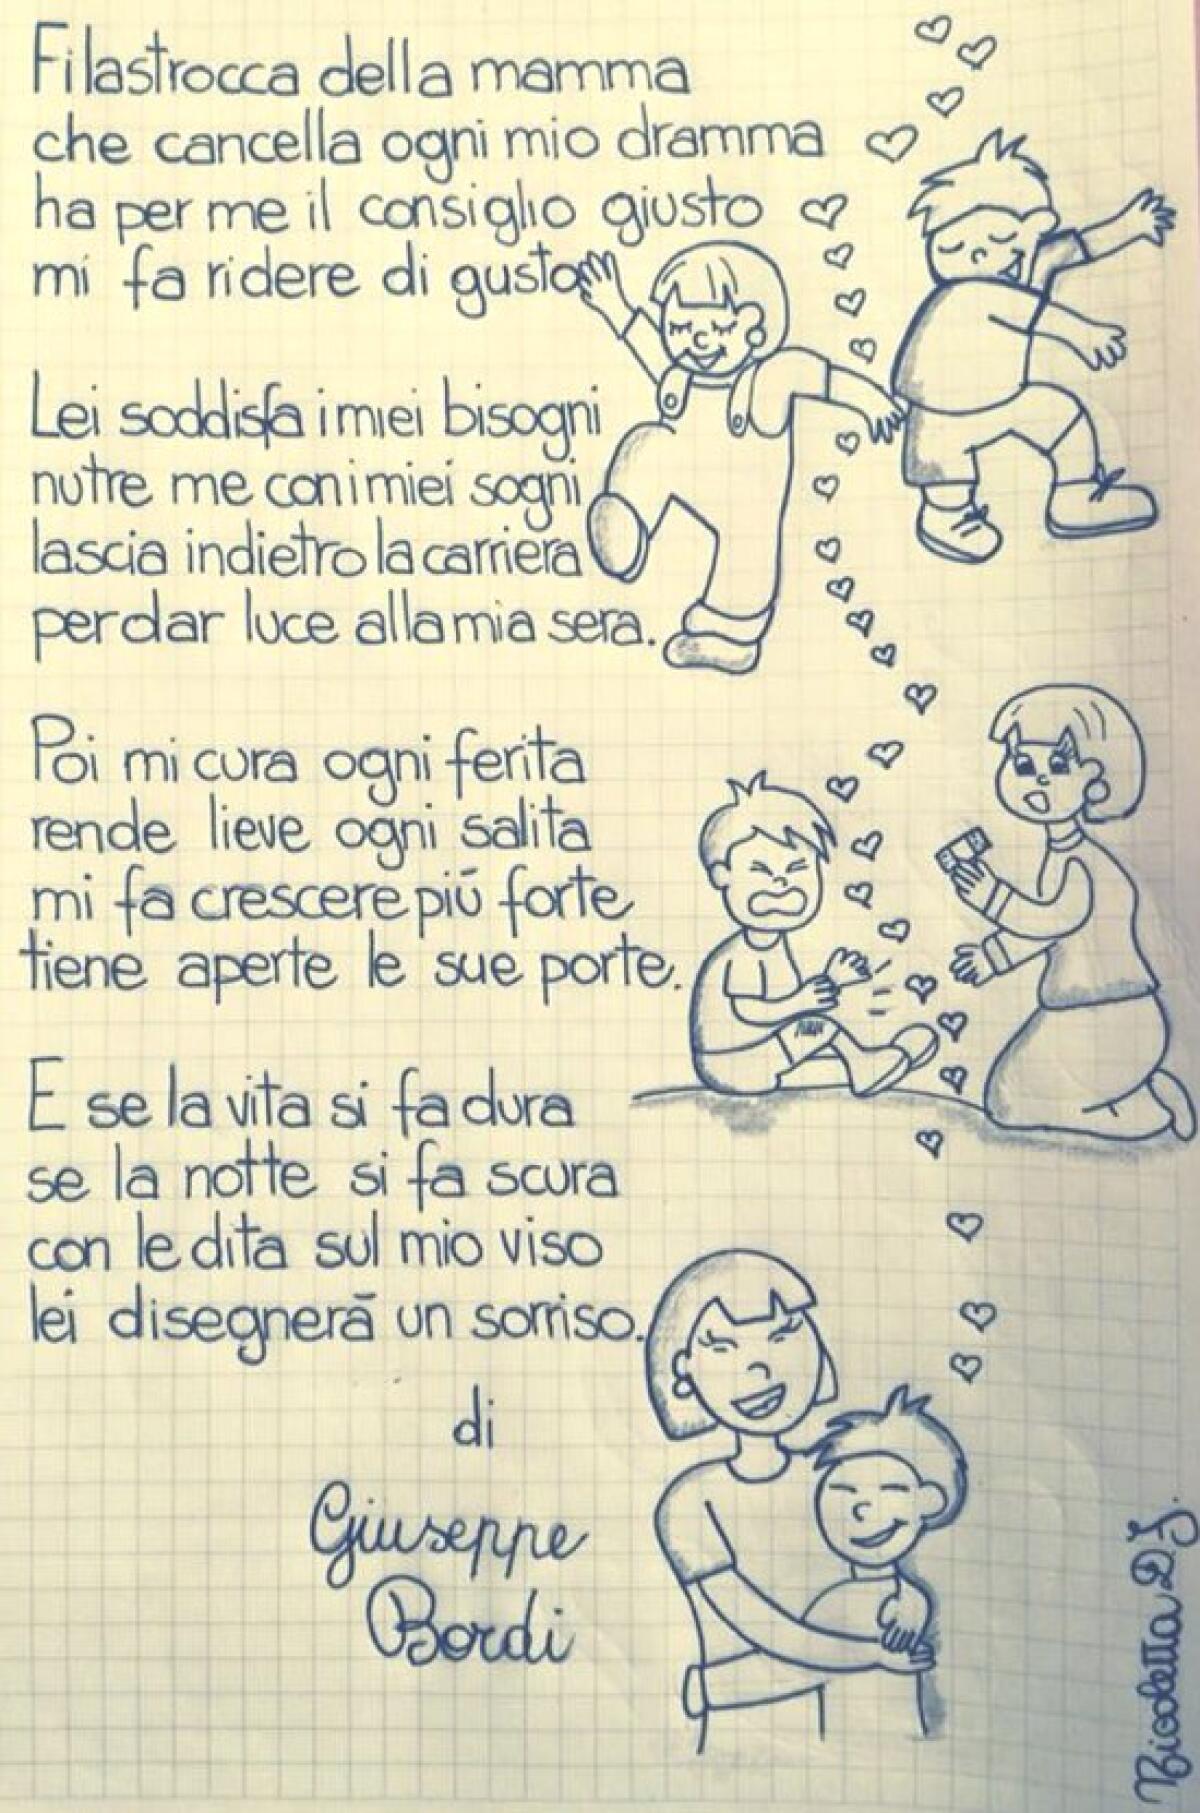 Filastrocca della mamma
che cancella ogni mio dramma
ha per me il consiglio giusto
mi fa ridere di gusto
Lei soddisfa i miei bisogni
nutre me con i miei sogni
lascia indietro la carriera
per dar luce alla mia sera.
Poi mi cura ogni ferita
rende lieve ogni salita
mi fa crescere più forte
tiene aperte le sue porte.
E se la vita si fa dura
se la notte si fa scura
con le dita sul mio viso
lei disegnerà un sorriso.
di
Giuseppe
Bordi
Nicoletta D.J.